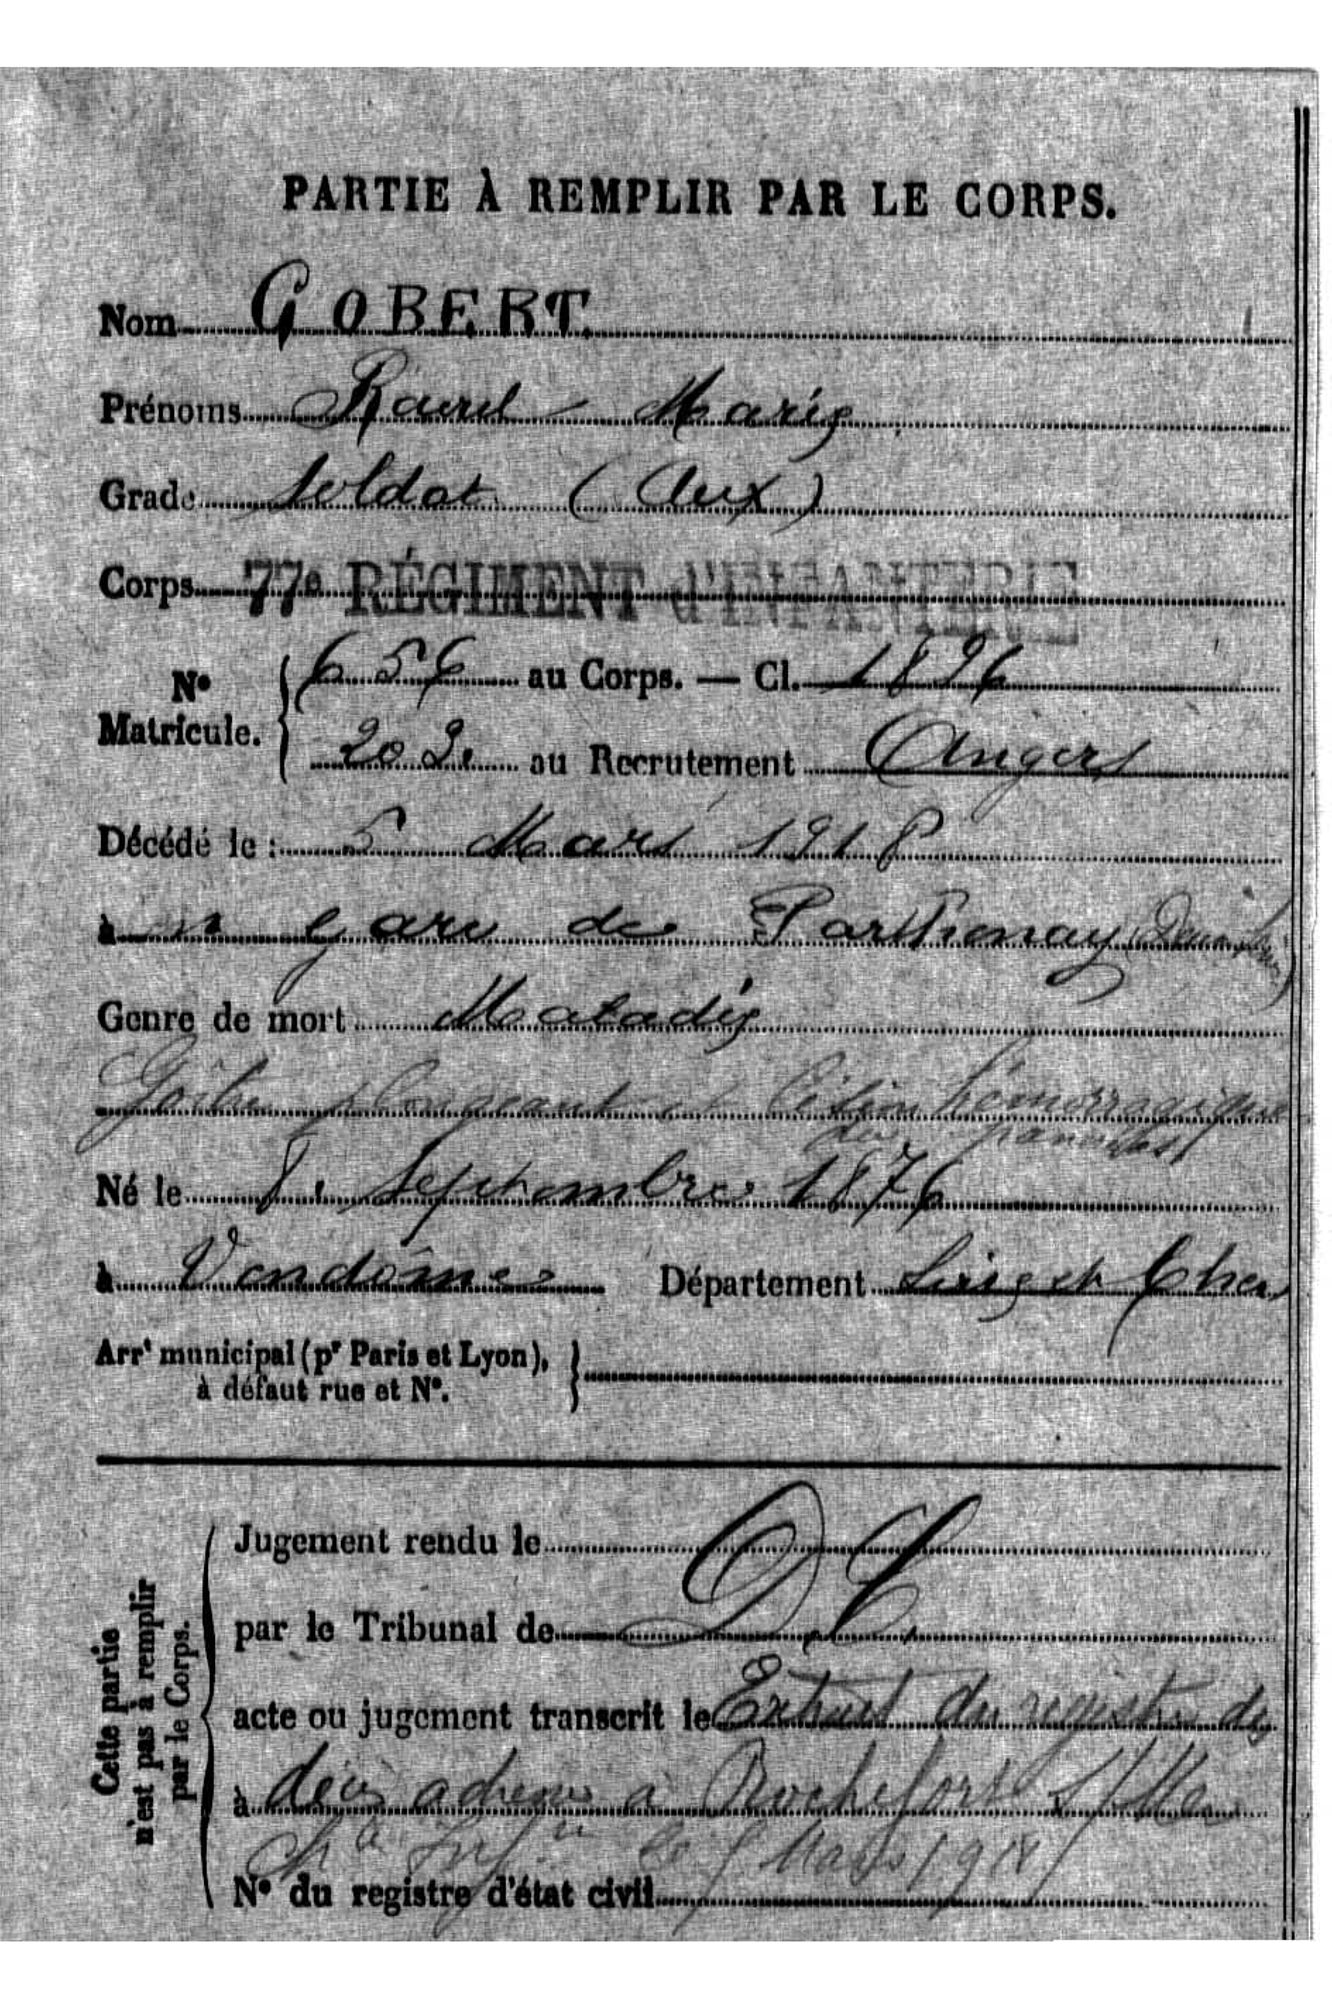 PARTIE À REMPLIR PAR LE CORPS.
Nom GOBERT
Prénoms Raoul - Marie
Grade soldat (Aux)
Corps 77e RÉGIMENT d'INFANTERIE
No Matricule. 656 au Corps. — Cl. 1896
202 au Recrutement Angers
Décédé le : 5 Mars 1918
à gare de Parthenay
Genre de mort Maladie
Goitre plongeant et lésion hémorragique
des
Né le 8 Septembre 1876
à Vendôme Département Loir et Cher
Arrt municipal (pr Paris et Lyon),
à défaut rue et No.
Cette partie
n'est pas à remplir
par le Corps.
Jugement rendu le
par le Tribunal de
acte ou jugement transcrit le Extrait du registre de
à décès adressé à Rochefort s/Mer
Mars 1918
No du registre d'état civil